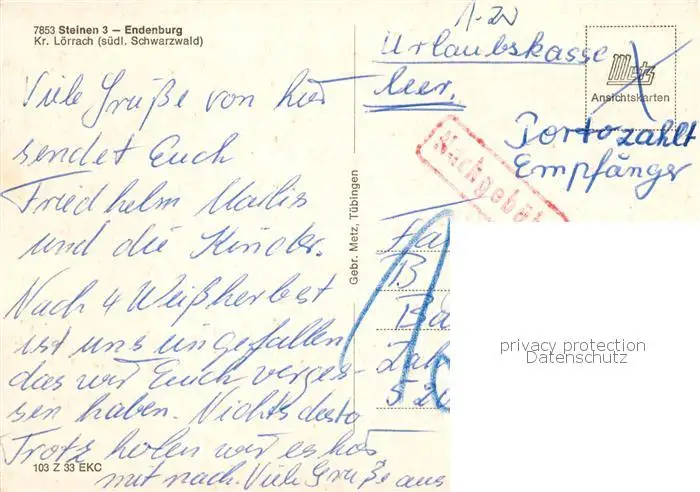 7853 Steinen 3 — Endenburg
Kr. Lörrach (südl. Schwarzwald)
Viele Grüße von hier
sendet Euch
Friedhelm Mailis
und die Kinder.
Nach 4 Weißherbst
ist uns eingefallen
das wir Euch verges-
sen haben. Nichts desto
Trotz holen wir es
mit nach. Viele Grüße aus
103 Z 33 EKC
Gebr. Metz, Tübingen
Urlaubskasse
leer.
Metz
Ansichtskarten
Porto zahlt
Empfänger
Nachgebüh
B
privacy protection
Datenschutz